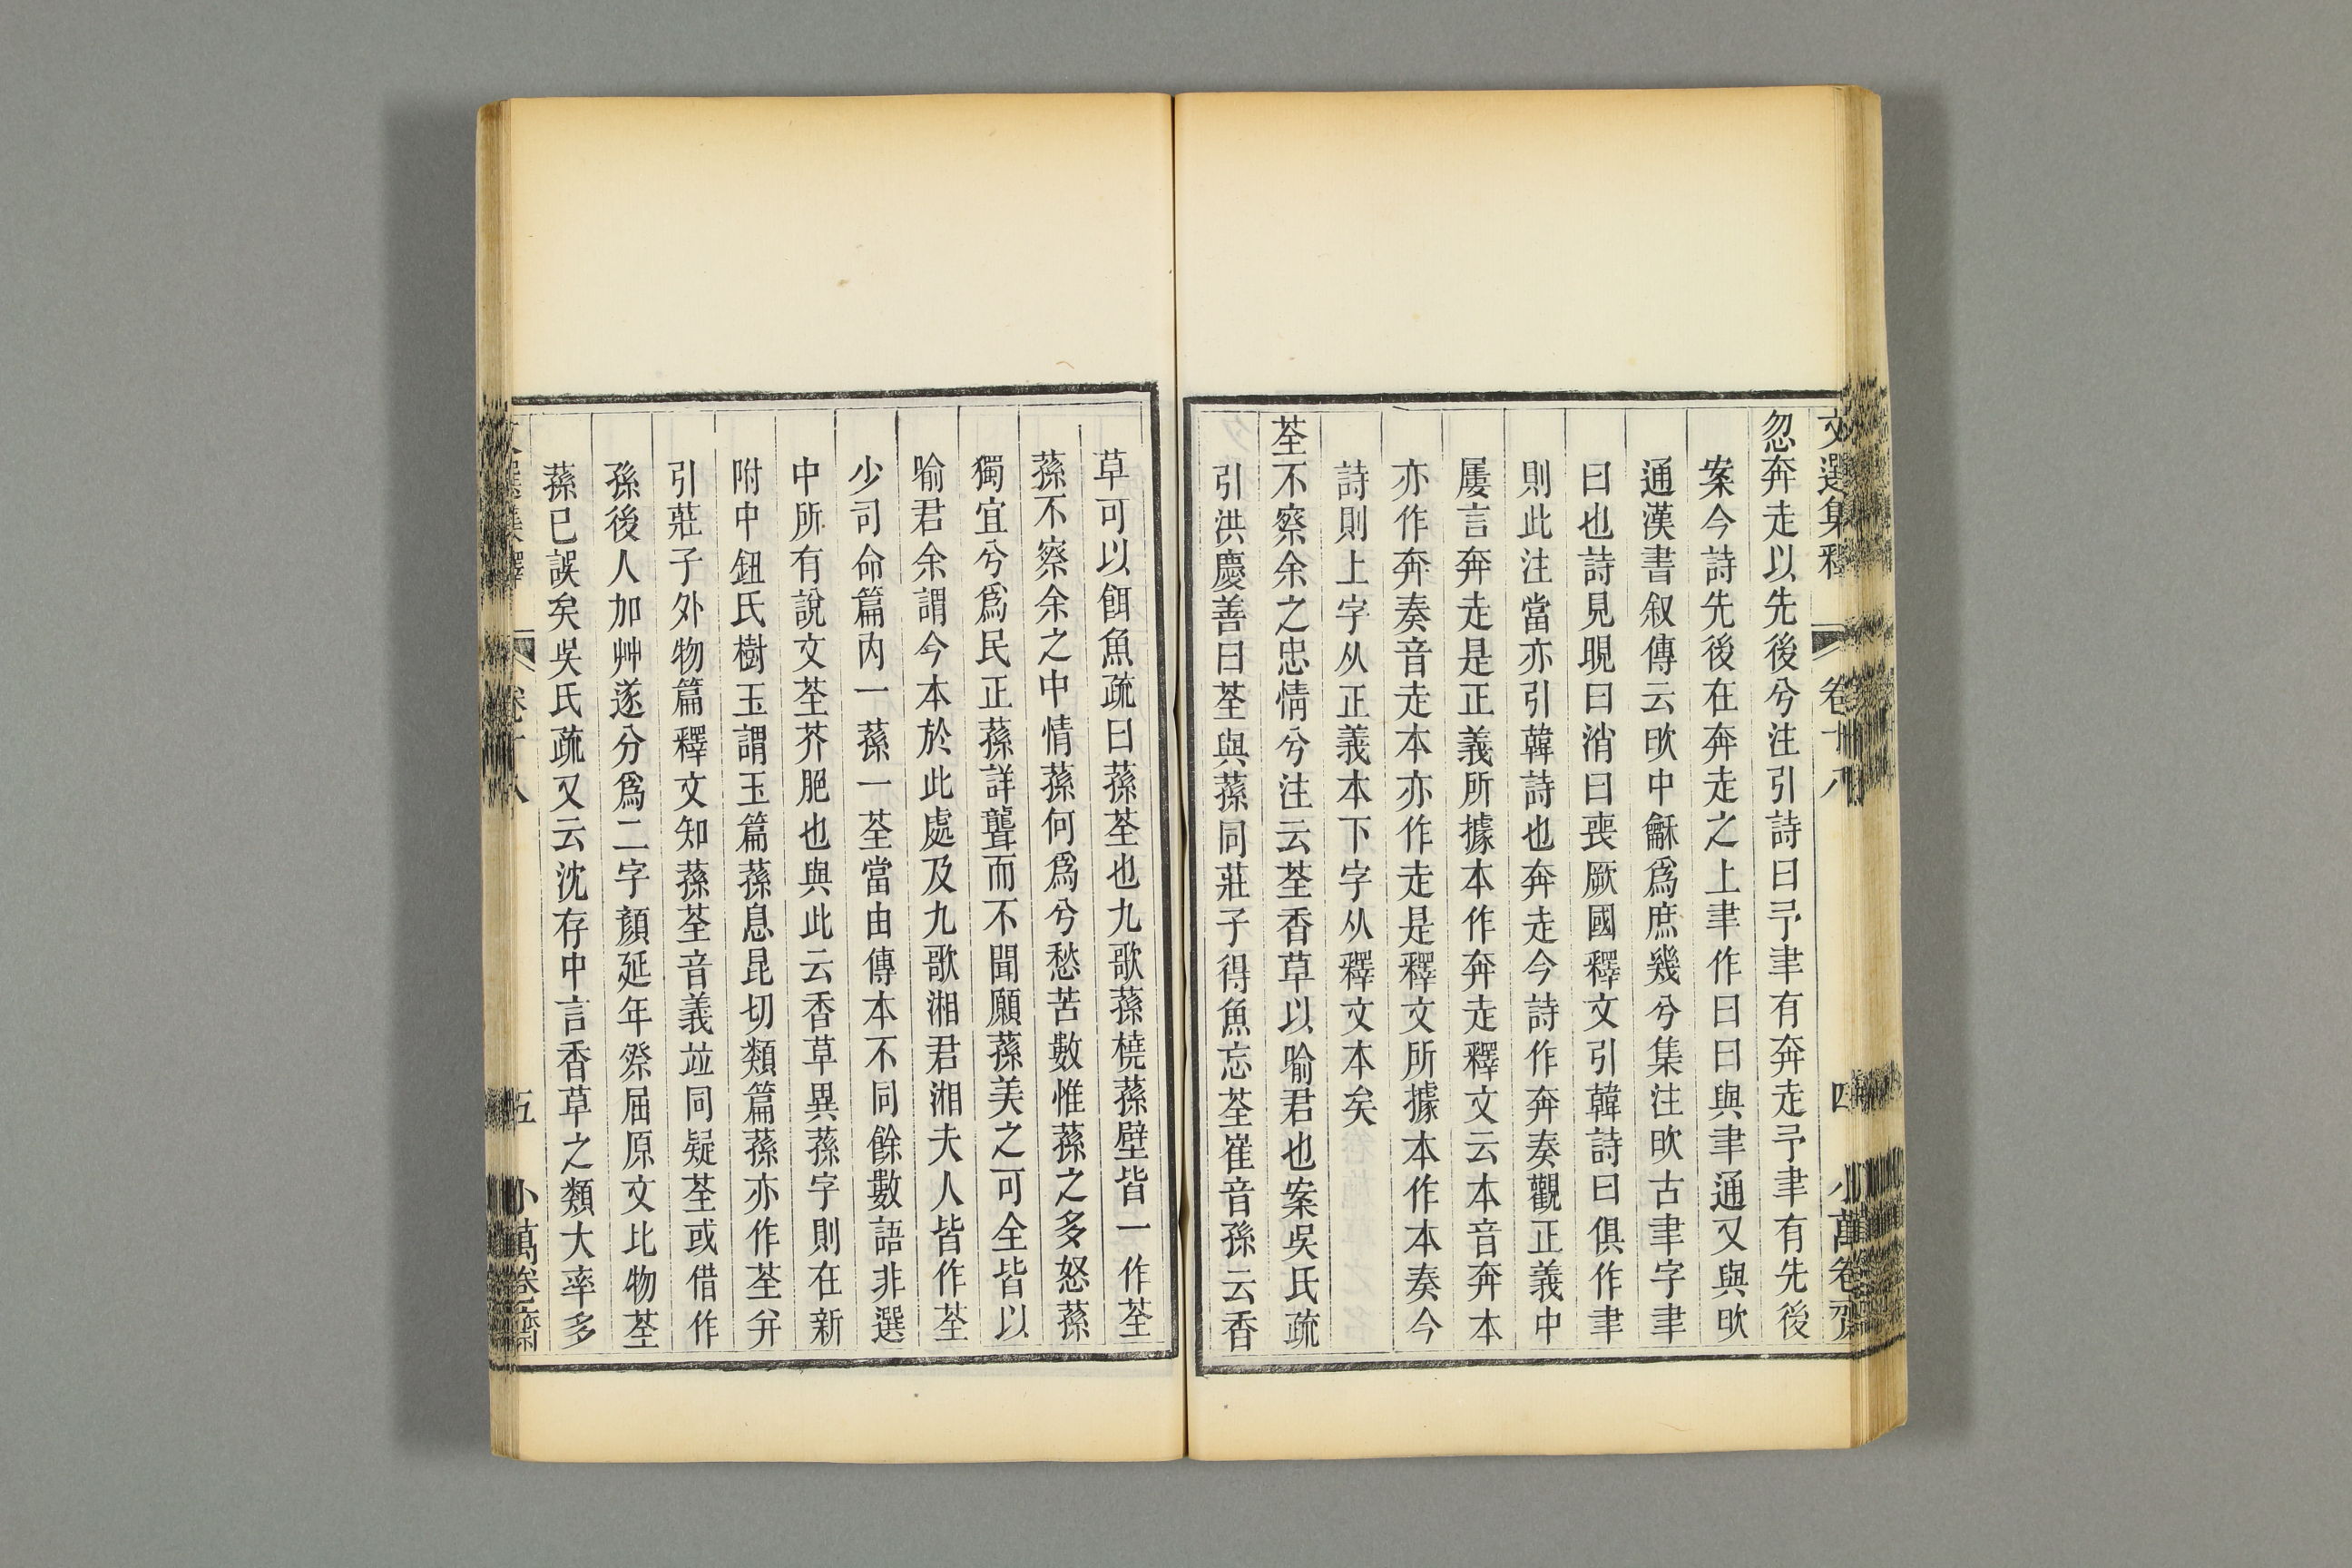 文選集釋 卷十八 四 小萬卷齋
忽奔走以先後兮注引詩曰予聿有奔走予聿有先後
案今詩先後在奔走之上聿作曰曰與聿通又與欥
通漢書叙傳云欥中龢爲庶幾兮集注欥古聿字聿
曰也詩見晛曰消曰喪厥國釋文引韓詩曰俱作聿
則此注當亦引韓詩也奔走今詩作奔奏觀正義中
屢言奔走是正義所據本作奔走釋文云本音奔本
亦作奔奏音走本亦作走是釋文所據本作本奏今
詩則上字从正義本下字从釋文本矣
荃不察余之忠情兮注云荃香草以喻君也案吳氏疏
引洪慶善曰荃與蓀同莊子得魚忘荃崔音孫云香
草可以餌魚疏曰蓀荃也九歌蓀橈蓀壁皆一作荃
蓀不察余之中情蓀何爲兮愁苦數惟蓀之多怒蓀
獨宜兮爲民正蓀詳聾而不聞願蓀美之可全皆以
喻君余謂今本於此處及九歌湘君湘夫人皆作荃
少司命篇内一蓀一荃當由傳本不同餘數語非選
中所有說文荃芥脃也與此云香草異蓀字則在新
附中鈕氏樹玉謂玉篇蓀息昆切類篇蓀亦作荃幷
引莊子外物篇釋文知蓀荃音義竝同疑荃或借作
孫後人加艸遂分爲二字顏延年祭屈原文比物荃
蓀已誤矣吳氏疏又云沈存中言香草之類大率多
文選集釋 卷十八 五 小萬卷齋